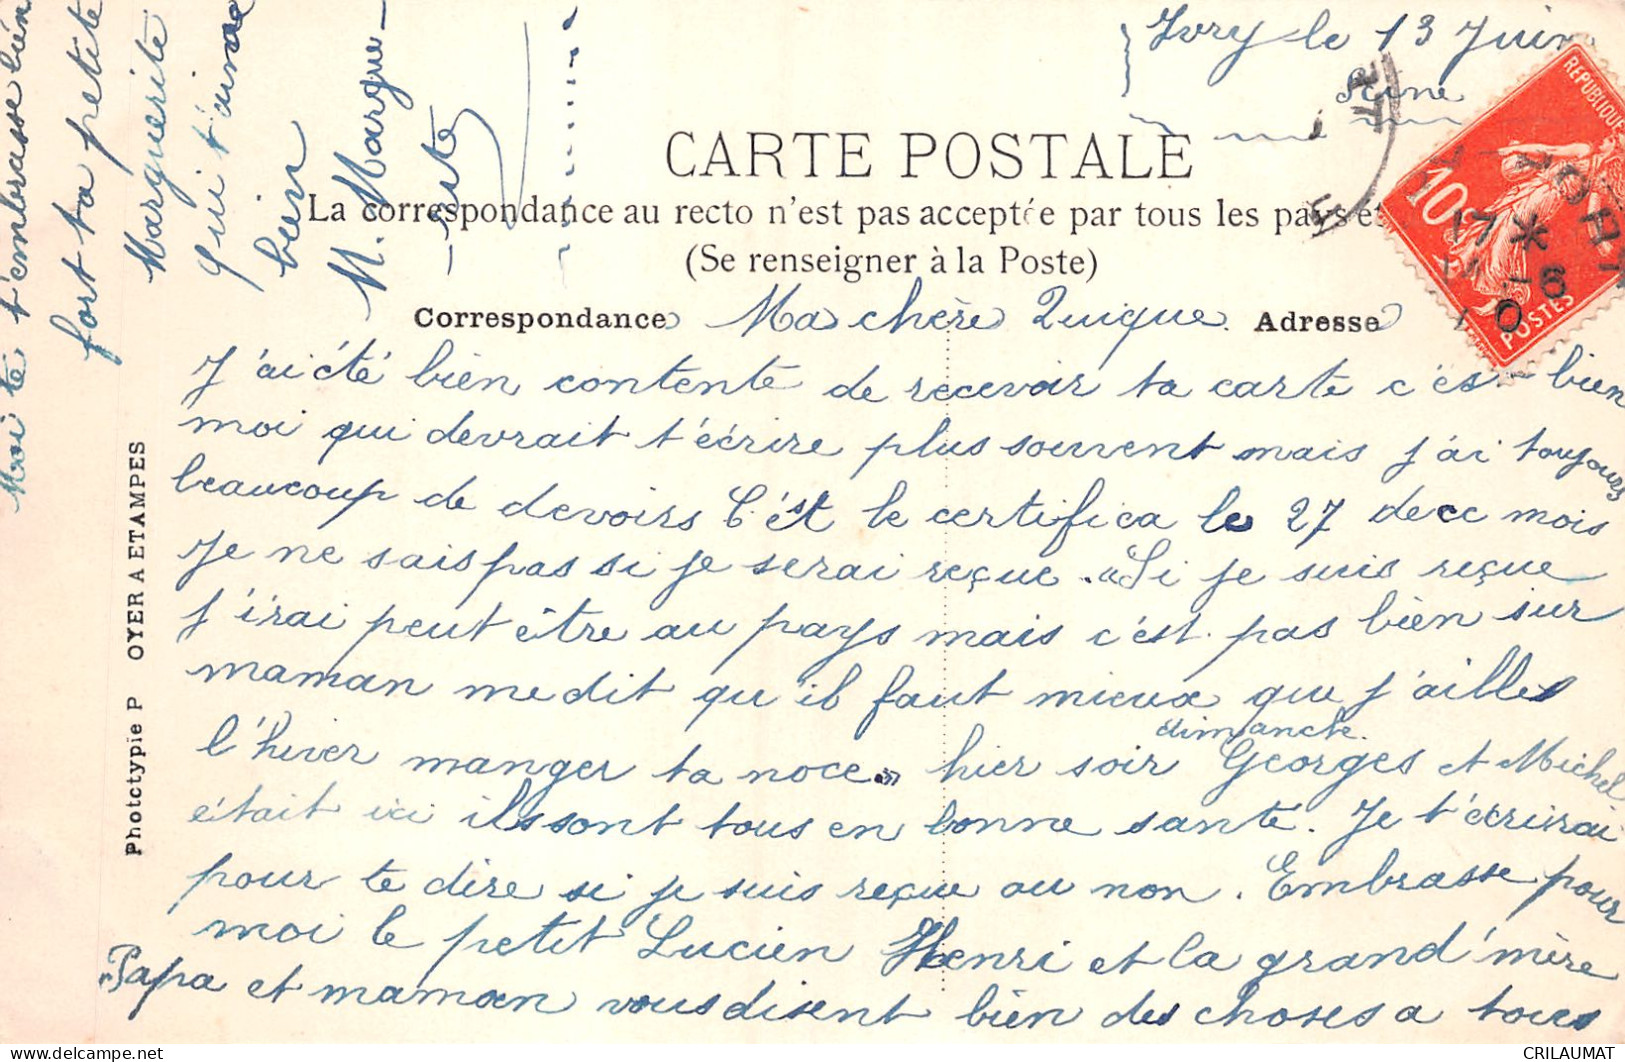 Ivry le 13 Juin
Seine
CARTE POSTALE
La correspondance au recto n'est pas acceptée par tous les pays ét
(Se renseigner à la Poste)
Correspondance
Adresse
RÉPUBLIQUE
10c
POSTES
17 *
-6
0
Ma chère Quique
J'ai été bien contente de recevoir ta carte c'est bien
moi qui devrait t'écrire plus souvent mais j'ai toujours
beaucoup de devoirs C'est le certifica le 27 de ce mois
Je ne sais pas si je serai reçue. "Si je suis reçue
j'irai peut être au pays mais c'est pas bien sur
maman me dit qu'il faut mieux que j'ailles
l'hiver manger ta noce" hier soir dimanche Georges et Michel
était ici ils sont tous en bonne santé. Je t'écrirai
pour te dire si je suis reçue ou non. Embrasse pour
moi le petit Lucien Henri et la grand'mère
Papa et maman vous disent bien des choses a tous
Moi te t'embrasse bien
fort ta petite
Marguerite
qui t'aime
bien
M. Margue-
-rite
Phototypie P OYER A ETAMPES
CRILAUMAT